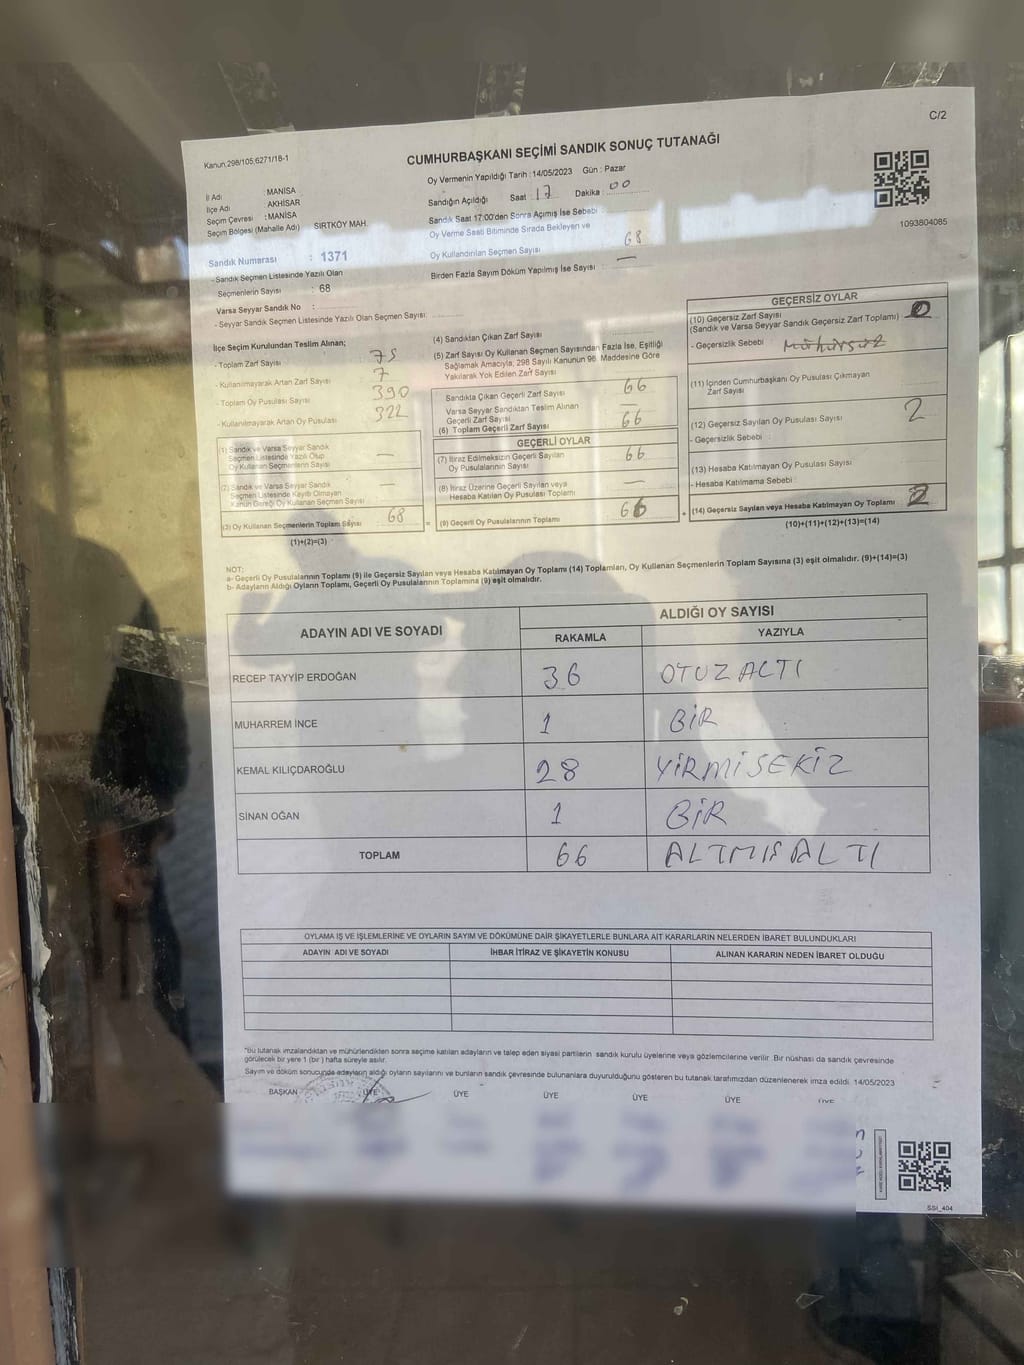 C/2
Kanun,298/105,6271/18-1
CUMHURBAŞKANI SEÇİMİ SANDIK SONUÇ TUTANAĞI
Oy Vermenin Yapıldığı Tarih : 14/05/2023 Gün : Pazar
İl Adı : MANİSA
İlçe Adı : AKHİSAR
Seçim Çevresi : MANİSA
Seçim Bölgesi (Mahalle Adı) SIRTKÖY MAH.
Sandığın Açıldığı Saat 17 Dakika : 00
Sandık Saat 17:00'den Sonra Açımış İse Sebebi :
Oy Verme Saati Bitiminde Sırada Bekleyen ve
Oy Kullandırılan Seçmen Sayısı 68
Birden Fazla Sayım Döküm Yapılmış İse Sayısı : —
1093804085
Sandık Numarası : 1371
- Sandık Seçmen Listesinde Yazılı Olan
Seçmenlerin Sayısı : 68
Varsa Seyyar Sandık No :
- Seyyar Sandık Seçmen Listesinde Yazılı Olan Seçmen Sayısı:
İlçe Seçim Kurulundan Teslim Alınan;
- Toplam Zarf Sayısı 75
- Kullanılmayarak Artan Zarf Sayısı 7
- Toplam Oy Pusulası Sayısı 390
- Kullanılmayarak Artan Oy Pusulası 322
(1) Sandık ve Varsa Seyyar Sandık
Seçmen Listesinde Yazılı Olup
Oy Kullanan Seçmenlerin Sayısı —
(2) Sandık ve Varsa Seyyar Sandık
Seçmen Listesinde Kayıtlı Olmayan
Kanun Gereği Oy Kullanan Seçmen Sayısı —
(3) Oy Kullanan Seçmenlerin Toplam Sayısı 68
(1)+(2)=(3)
(4) Sandıktan Çıkan Zarf Sayısı
(5) Zarf Sayısı Oy Kullanan Seçmen Sayısından Fazla İse, Eşitliği
Sağlamak Amacıyla, 298 Sayılı Kanunun 96. Maddesine Göre
Yakılarak Yok Edilen Zarf Sayısı
Sandıkta Çıkan Geçerli Zarf Sayısı 66
Varsa Seyyar Sandıktan Teslim Alınan
Geçerli Zarf Sayısı —
(6) Toplam Geçerli Zarf Sayısı 66
GEÇERLİ OYLAR
(7) İtiraz Edilmeksizin Geçerli Sayılan
Oy Pusulalarının Sayısı 66
(8) İtiraz Üzerine Geçerli Sayılan veya
Hesaba Katılan Oy Pusulası Toplamı —
= (9) Geçerli Oy Pusulalarının Toplamı 66
GEÇERSİZ OYLAR
(10) Geçersiz Zarf Sayısı
(Sandık ve Varsa Seyyar Sandık Geçersiz Zarf Toplamı) 0
- Geçersizlik Sebebi : Mühürsüz
(11) İçinden Cumhurbaşkanı Oy Pusulası Çıkmayan
Zarf Sayısı
(12) Geçersiz Sayılan Oy Pusulası Sayısı 2
- Geçersizlik Sebebi :
(13) Hesaba Katılmayan Oy Pusulası Sayısı
- Hesaba Katılmama Sebebi :
+ (14) Geçersiz Sayılan veya Hesaba Katılmayan Oy Toplamı 2
(10)+(11)+(12)+(13)=(14)
NOT:
a- Geçerli Oy Pusulalarının Toplamı (9) ile Geçersiz Sayılan veya Hesaba Katılmayan Oy Toplamı (14) Toplamları, Oy Kullanan Seçmenlerin Toplam Sayısına (3) eşit olmalıdır. (9)+(14)=(3)
b- Adayların Aldığı Oyların Toplamı, Geçerli Oy Pusulalarının Toplamına (9) eşit olmalıdır.
ADAYIN ADI VE SOYADI ALDIĞI OY SAYISI
RAKAMLA YAZIYLA
RECEP TAYYİP ERDOĞAN 36 OTUZ ALTI
MUHARREM İNCE 1 BİR
KEMAL KILIÇDAROĞLU 28 YİRMİSEKİZ
SİNAN OĞAN 1 BİR
TOPLAM 66 ALTMIŞ ALTI
OYLAMA İŞ VE İŞLEMLERİNE VE OYLARIN SAYIM VE DÖKÜMÜNE DAİR ŞİKAYETLERLE BUNLARA AİT KARARLARIN NELERDEN İBARET BULUNDUKLARI
ADAYIN ADI VE SOYADI İHBAR İTİRAZ VE ŞİKAYETİN KONUSU ALINAN KARARIN NEDEN İBARET OLDUĞU
*Bu tutanak imzalandıktan ve mühürlendikten sonra seçime katılan adayların ve talep eden siyasi partilerin sandık kurulu üyelerine veya gözlemcilerine verilir. Bir nüshası da sandık çevresinde
görülecek bir yere 1 (bir) hafta süreyle asılır.
Sayım ve döküm sonucunda adayların aldığı oyların sayılarını ve bunların sandık çevresinde bulunanlara duyurulduğunu gösteren bu tutanak tarafımızdan düzenlenerek imza edildi. 14/05/2023
BAŞKAN ÜYE ÜYE ÜYE ÜYE ÜYE ÜYE
SSI_404